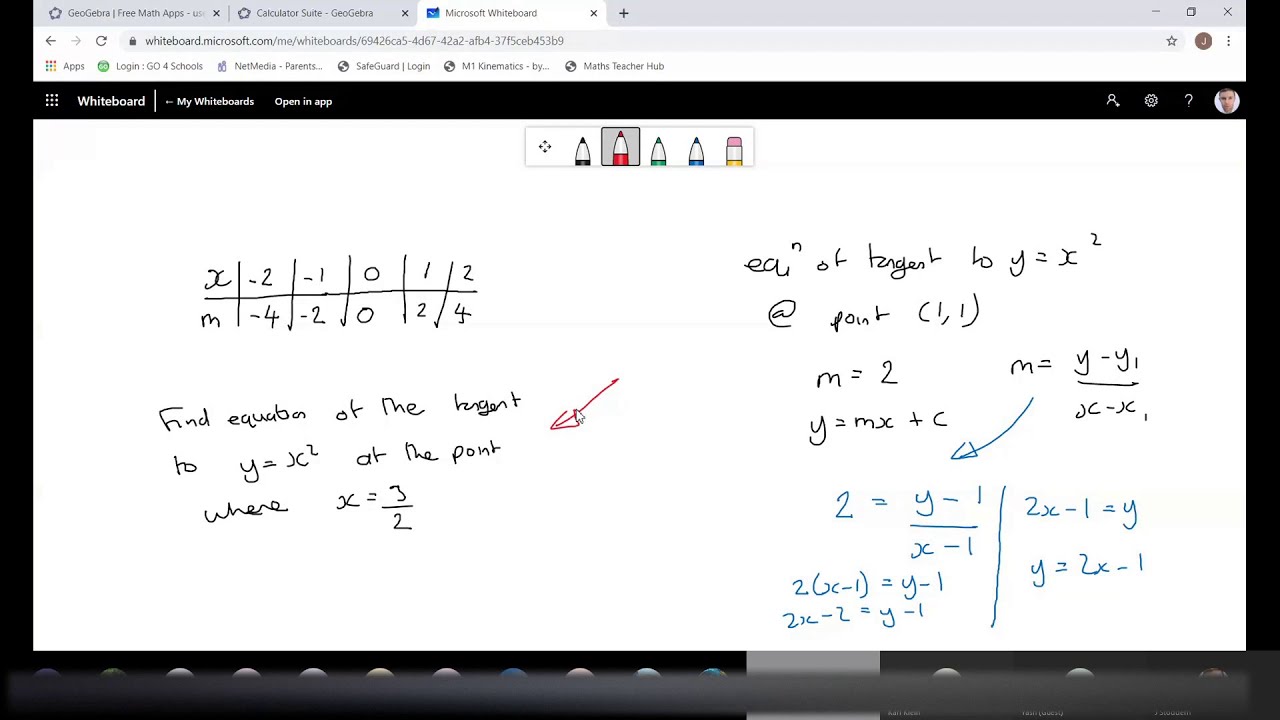 GeoGebra | Free Math Apps - use
Calculator Suite - GeoGebra
Microsoft Whiteboard
whiteboard.microsoft.com/me/whiteboards/69426ca5-4d67-42a2-afb4-37f5ceb453b9
J
Apps
GO Login : GO 4 Schools
NetMedia - Parents...
SafeGuard | Login
M1 Kinematics - by...
Maths Teacher Hub
Whiteboard
← My Whiteboards
Open in app
x | -2 | -1 | 0 | 1 | 2
m | -4 | -2 | 0 | 2 | 4
Find equation of the tangent
to y = x²
at the point
where x = 3/2
eqⁿ of tangent to y = x²
@ point (1,1)
m = 2
y = mx + c
m = (y - y₁)/(x - x₁)
2 = (y - 1)/(x - 1)
2(x-1) = y-1
2x-2 = y-1
2x-1 = y
y = 2x-1
Karl Klein
Yash (Guest)